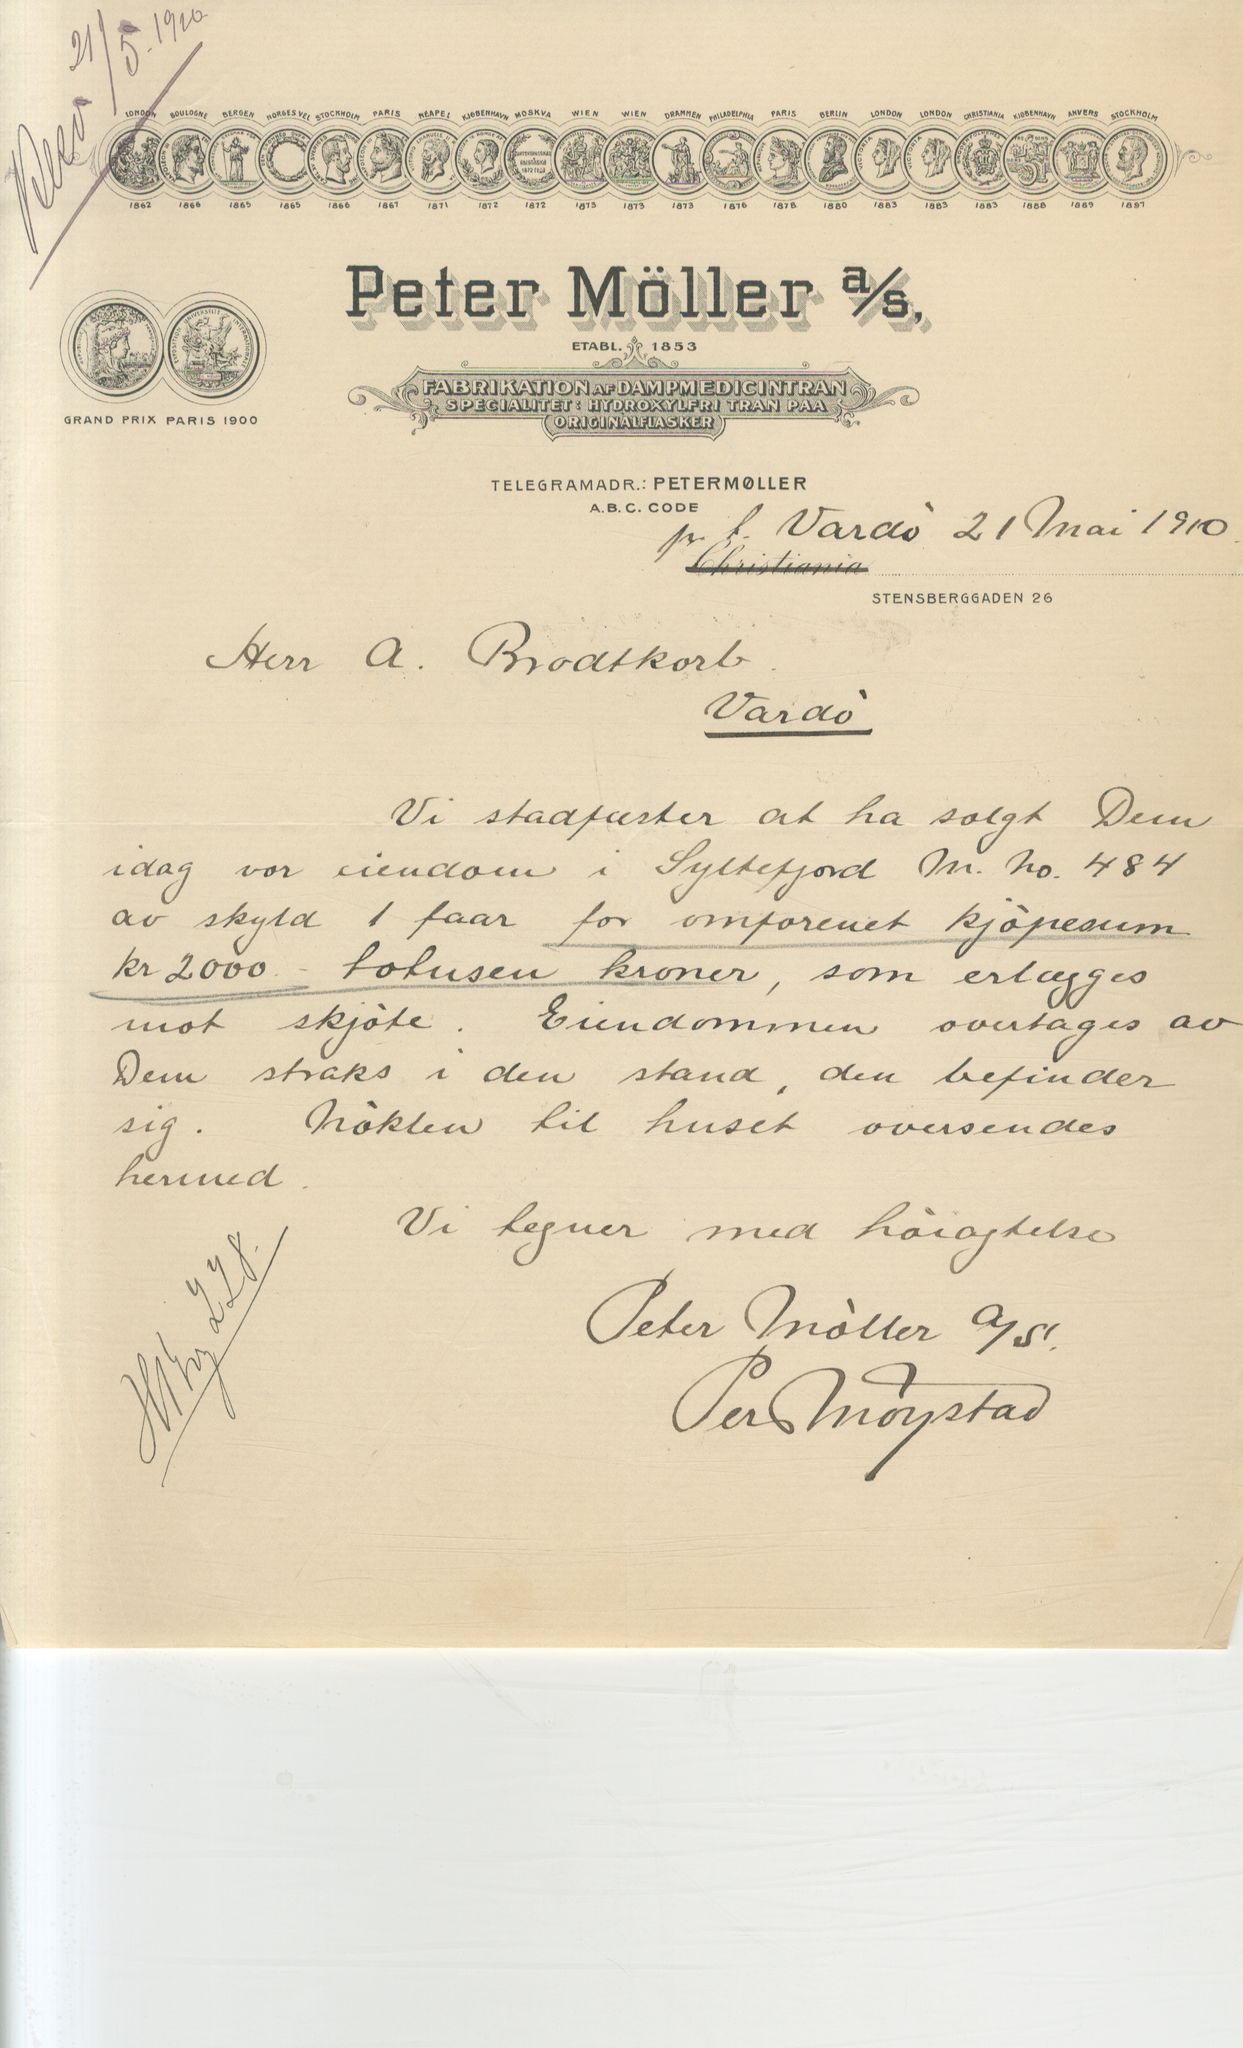 21/5. 1910
LONDON BOULOGNE BERGEN NORGES VEL STOCKHOLM PARIS NEAPEL KJØBENHAVN MOSKVA WIEN WIEN DRAMMEN PHILADELPHIA PARIS BERLIN LONDON LONDON CHRISTIANIA KJØBENHAVN ANVERS STOCKHOLM
1862 1866 1865 1865 1866 1867 1871 1872 1872 1873 1873 1873 1876 1878 1880 1883 1883 1883 1888 1889 1897
Peter Möller A/S,
ETABL. 1853
FABRIKATION AF DAMPMEDICINTRAN
SPECIALITET: HYDROXYLFRI TRAN PAA
ORIGINALFLASKER
GRAND PRIX PARIS 1900
TELEGRAMADR.: PETERMØLLER
A.B.C. CODE
p. t. Vardö 21 Mai 1910.
Christiania
STENSBERGGADEN 26
Herr A. Brodtkorb.
Vardö
Vi stadfæster at ha solgt Dem
idag vor eiendom i Syltefjord M. No. 484
av skyld 1 faar for omforenet kjöpesum
kr 2000 - totusen kroner, som erlægges
mot skjöte. Eiendommen overtages av
Dem straks i den stand, den befinder
sig. Nöklen til huset oversendes
hermed.
Vi tegner med höiagtelse
Peter Möller A/S.
Per Möystad
228.